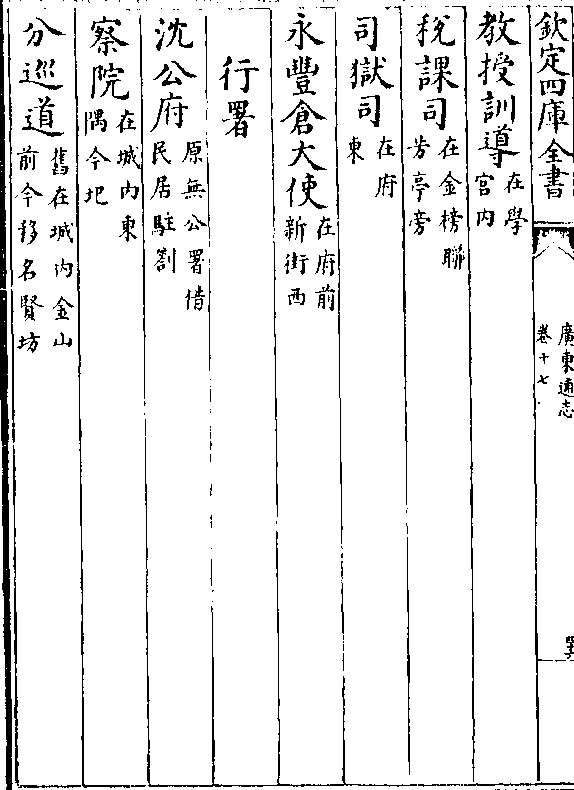 欽定四庫全書
廣東通志
卷十七
教授訓導在學宮内
稅課司在金榜聯芳亭旁
司獄司在府東
永豐倉大使在府前新街西
行署
沈公府原無公署借民居駐劄
察院在城内東隅今圯
分巡道舊在城内金山前今移名賢坊